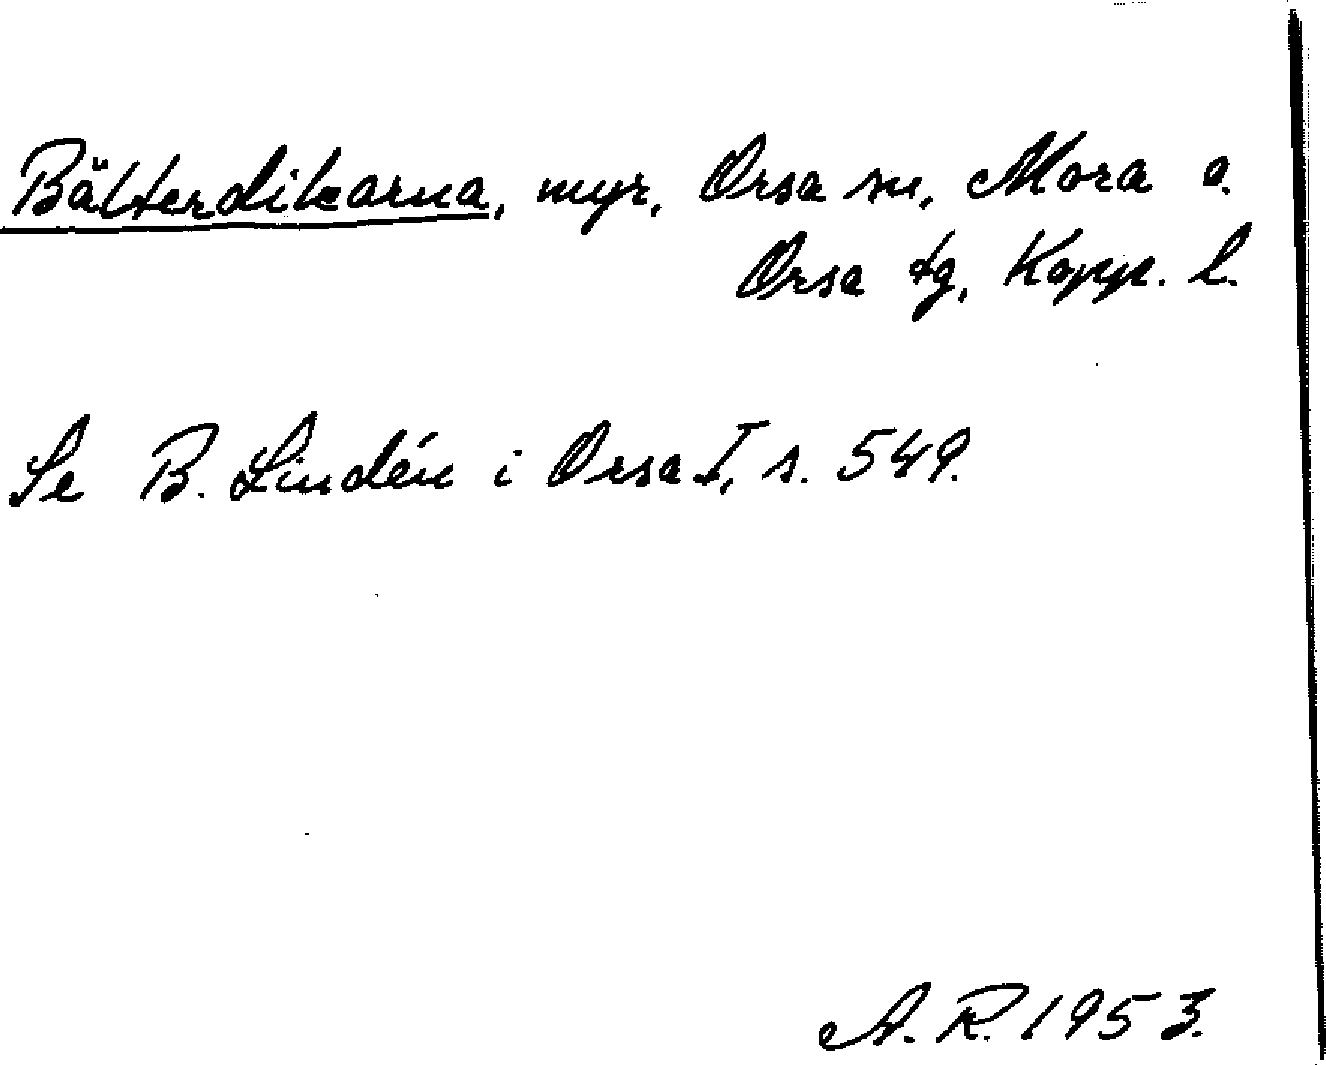 Bälterdikarna, myr, Orsa sn, Mora o.
Orsa tg, Kopp. l.
Se B. Lindén i Orsa I, s. 549.
A.R. 1953.